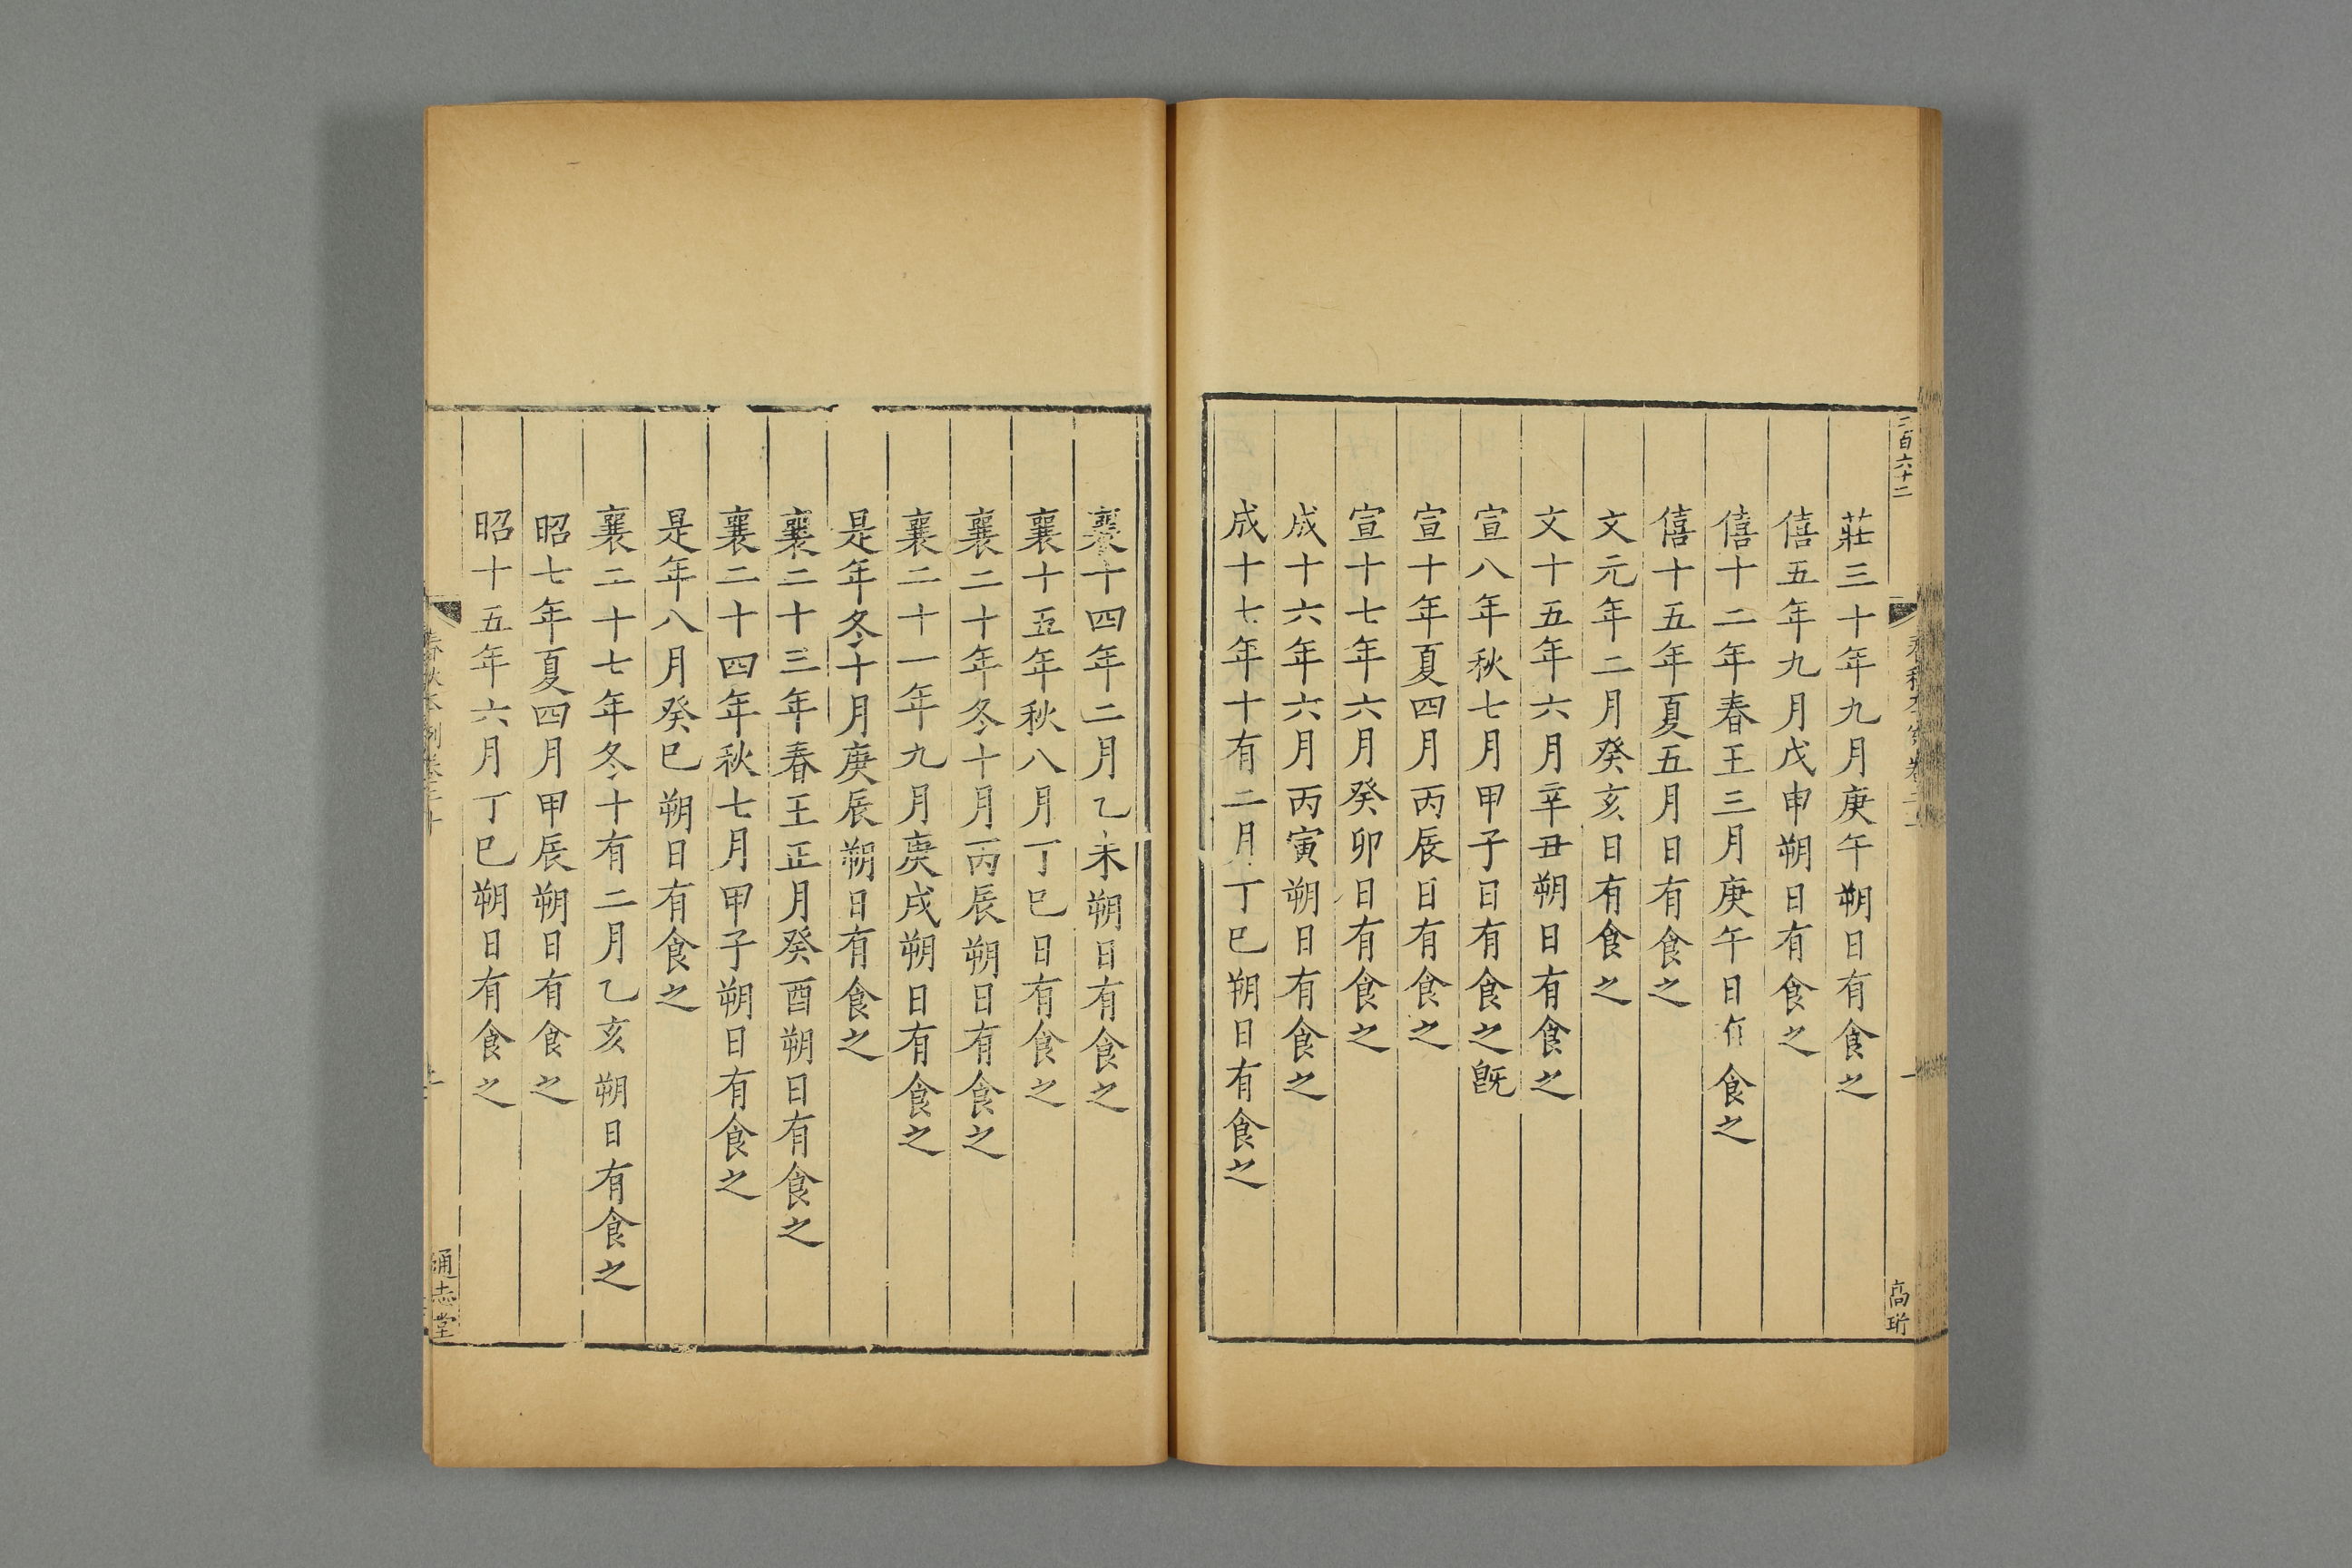 二百六十二
高珩
莊三十年九月庚午朔日有食之
僖五年九月戊申朔日有食之
僖十二年春王三月庚午日有食之
僖十五年夏五月日有食之
文元年二月癸亥日有食之
文十五年六月辛丑朔日有食之
宣八年秋七月甲子日有食之旣
宣十年夏四月丙辰日有食之
宣十七年六月癸卯日有食之
成十六年六月丙寅朔日有食之
成十七年十有二月丁巳朔日有食之
襄十四年二月乙未朔日有食之
襄十五年秋八月丁巳日有食之
襄二十年冬十月丙辰朔日有食之
襄二十一年九月庚戌朔日有食之
是年冬十月庚辰朔日有食之
襄二十三年春王正月癸酉朔日有食之
襄二十四年秋七月甲子朔日有食之
是年八月癸巳朔日有食之
襄二十七年冬十有二月乙亥朔日有食之
昭七年夏四月甲辰朔日有食之
昭十五年六月丁巳朔日有食之
通志堂